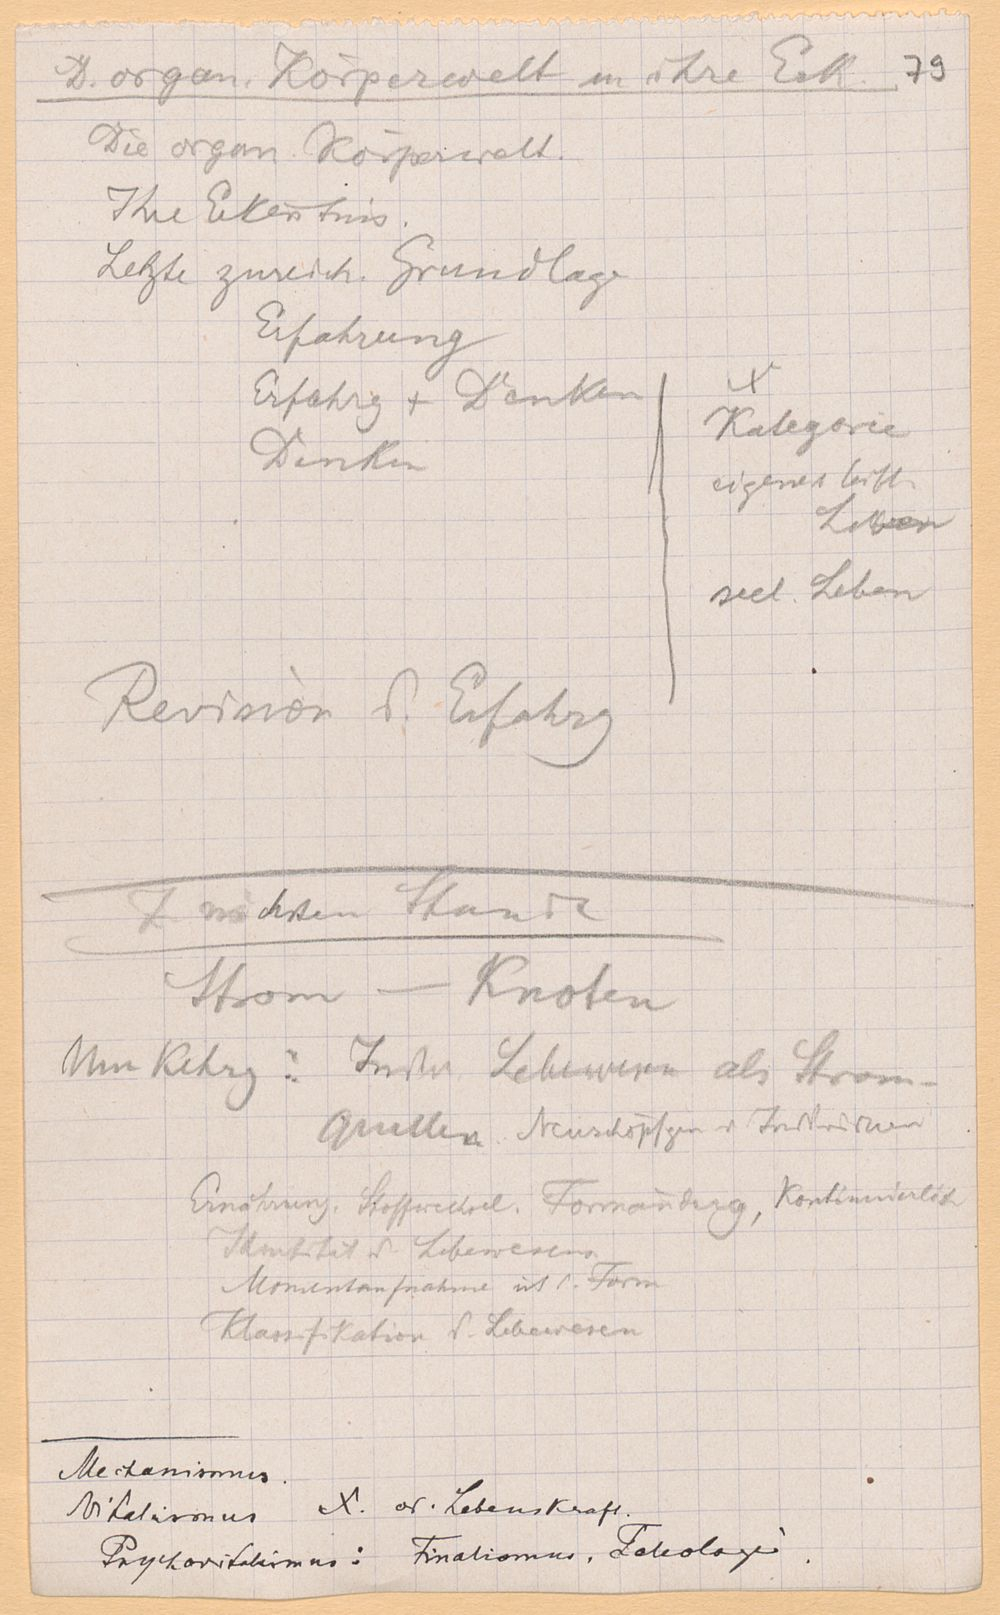 D. organ. Körperwelt u ihre Erk. 79
Die organ. Körperwelt.
Ihre Erkenntnis.
Letzte zureich. Grundlage
Erfahrung
Erfahrg + Denken
Denken
X
Kategorie
eigenes
Leben
seel. Leben
Revision d. Erfahrg
Z nächsten Stunde
Strom — Knoten
Umkehrg: Lebewesen als Strom-
Quellen. Neuschöpfgen v Individuen
Ernährung. Stoffwechsel. Formänderg, Kontinuierlich
Identität d. Lebewesens
Momentaufnahme ist d. Form
Klassifikation d. Lebewesen
Mechanismus.
Vitalismus X. od. Lebenskraft.
Psychovitalismus: Finalismus, Teleologie.